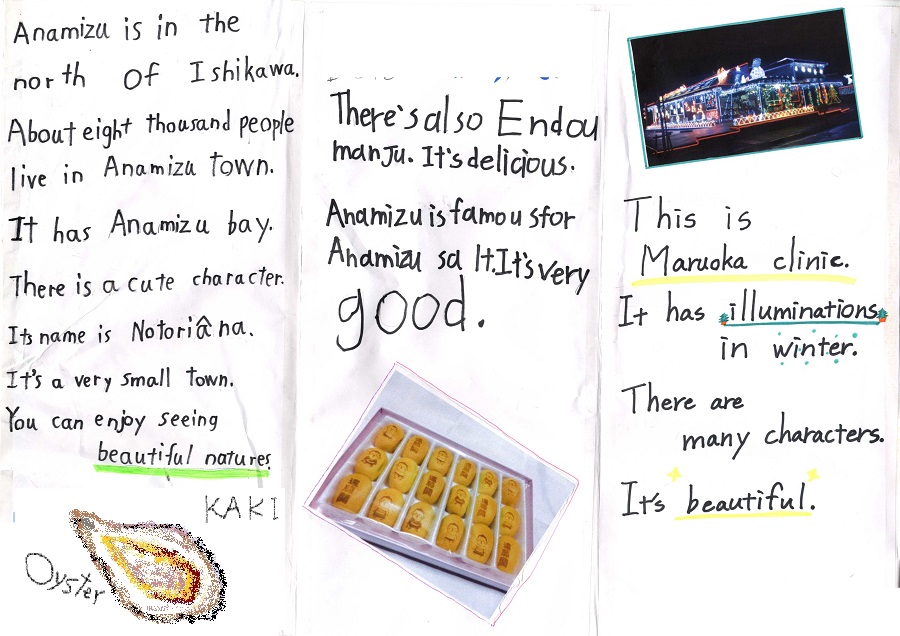 Anamizu is in the
north of Ishikawa.
About eight thousand people
live in Anamizu town.
It has Anamizu bay.
There is a cute character.
Its name is Notoriâna.
It's a very small town.
You can enjoy seeing
beautiful natures
KAKI
Oyster
There's also Endou
manju. It's delicious.
Anamizu is famous for
Anamizu salt. It's very
good.
This is
Maruoka clinic.
It has illuminations
in winter.
There are
many characters.
It's beautiful.